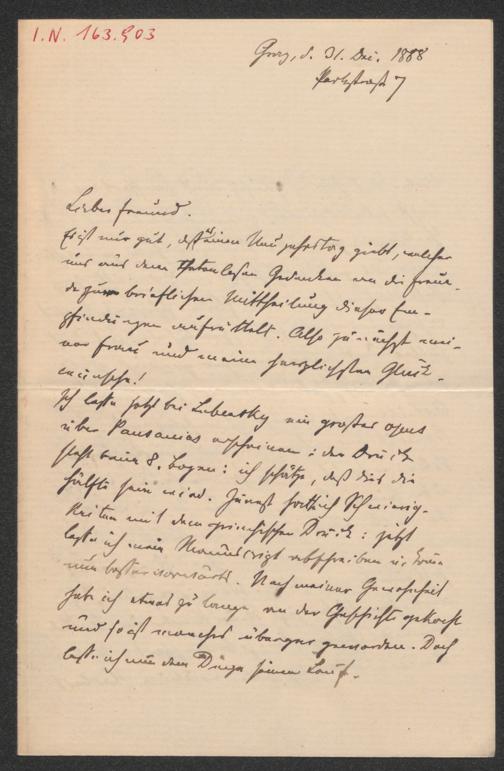 I.N. 163.903
Graz, d. 31. Dec. 1888
Parkstraße 7
Lieber Freund.
Es ist nur gut, daß es einen Neujahrstag giebt, welcher
uns aus dem thatenlosen Gedenken an die Freun-
de zur brieflichen Mittheilung dieser Em-
pfindungen aufrüttelt. Also zunächst mei-
ner Frau und meine herzlichsten Glück-
wünsche!
Ich lasse jetzt bei Lubensky ein großes opus
über Pausanias erscheinen: der Druck
steht beim 8. Bogen: ich schätze, daß dies die
Hälfte sein wird. Zuerst hatte ich Schwierig-
keiten mit dem griechischen Druck: jetzt
lasse ich mein Manuscript abschreiben u. komme
nun besser vorwärts. Nach meiner Gewohnheit
habe ich etwas zu lange an der Geschichte gekocht
und so ist manches übergar geworden. Doch
lasse ich nun dem Dinge seinen Lauf.